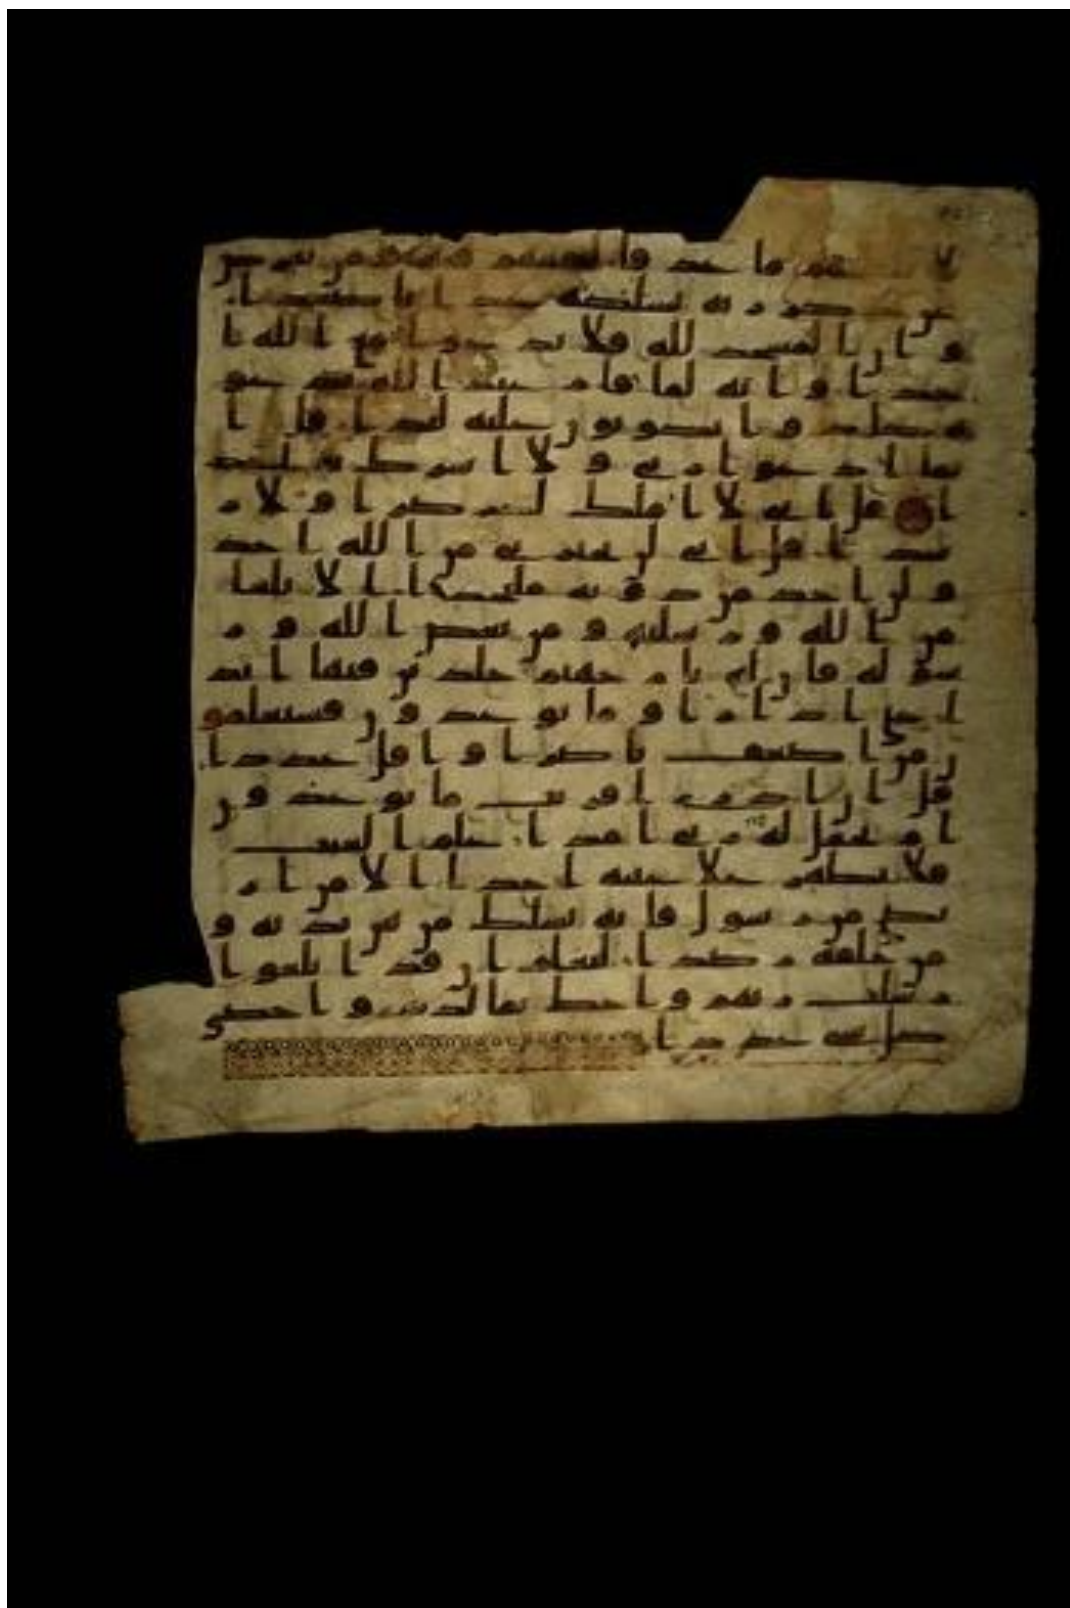 لاسقينهم ما غدقا لنفتنهم فيه ومن يعرض
عن ذكر ربه يسلكه عذابا صعدا
وان المسجد لله فلا تدعوا مع الله ا
حدا وانه لما قام عبد الله يدعو
ه كادوا يكونون عليه لبدا قل ا
نما ادعوا ربي ولا اشرك به احد
ا قل اني لا املك لكم ضرا ولا ر
شدا قل اني لن يجيرني من الله احد
ولن اجد من دونه ملتحدا الا بلغا
من الله ورسلته ومن يعص الله ور
سوله فان له نار جهنم خلدين فيها ابد
ا حتى اذا راوا ما يوعدون فسيعلمو
ن من اضعف ناصرا واقل عددا
قل ان ادري اقريب ما توعدون
ام يجعل له ربي امدا علم الغيب
فلا يظهر على غيبه احدا الا من ار
تضى من رسول فانه يسلك من بين يديه و
من خلفه رصدا ليعلم ان قد ابلغوا
رسلت ربهم واحط بما لديهم واحصى
كل شي عددا